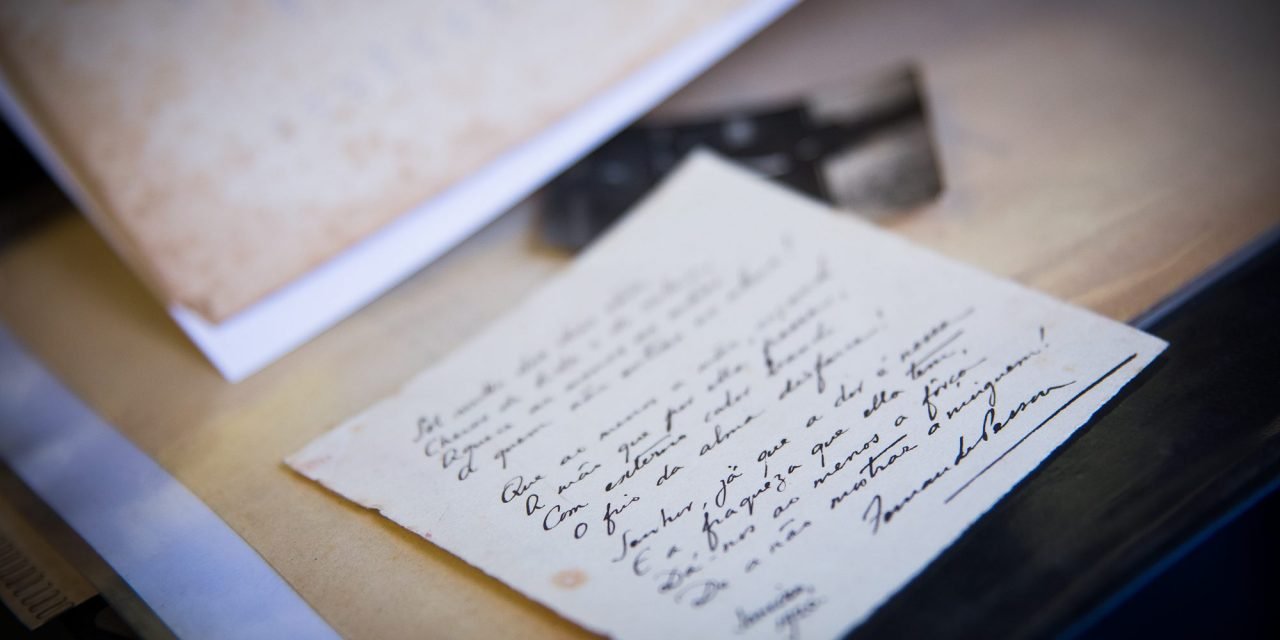 Sol nulo dos dias vãos,
Cheios de lida e de calma,
Aquece ao menos as mãos
A quem não entras na alma!
Que ao menos a mão, roçando
A mão que por ella passe,
Com externo calor brando
O frio da alma disfarce!
Senhor, já que a dôr é nossa
E a fraqueza que ella tem,
Dá-nos ao menos a fôrça
De a não mostrar a ninguem!
Fernando Pessoa